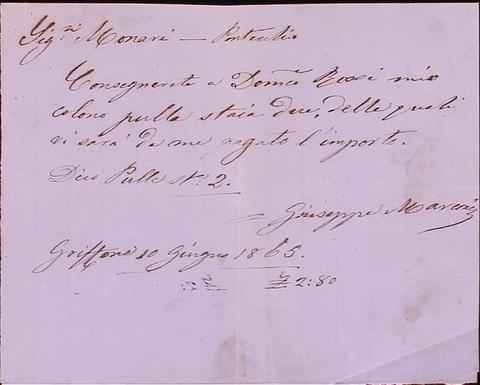 Sig.ri Monari — Pontecchio
Consegnerete a Dom.co Rossi mio
colono pulla staia due, delle quali
vi sarà da me pagato l'importo.
Dico Pulla st.a 2.
Giuseppe
Griffone 10 Giugno 1865.
£ 2:80